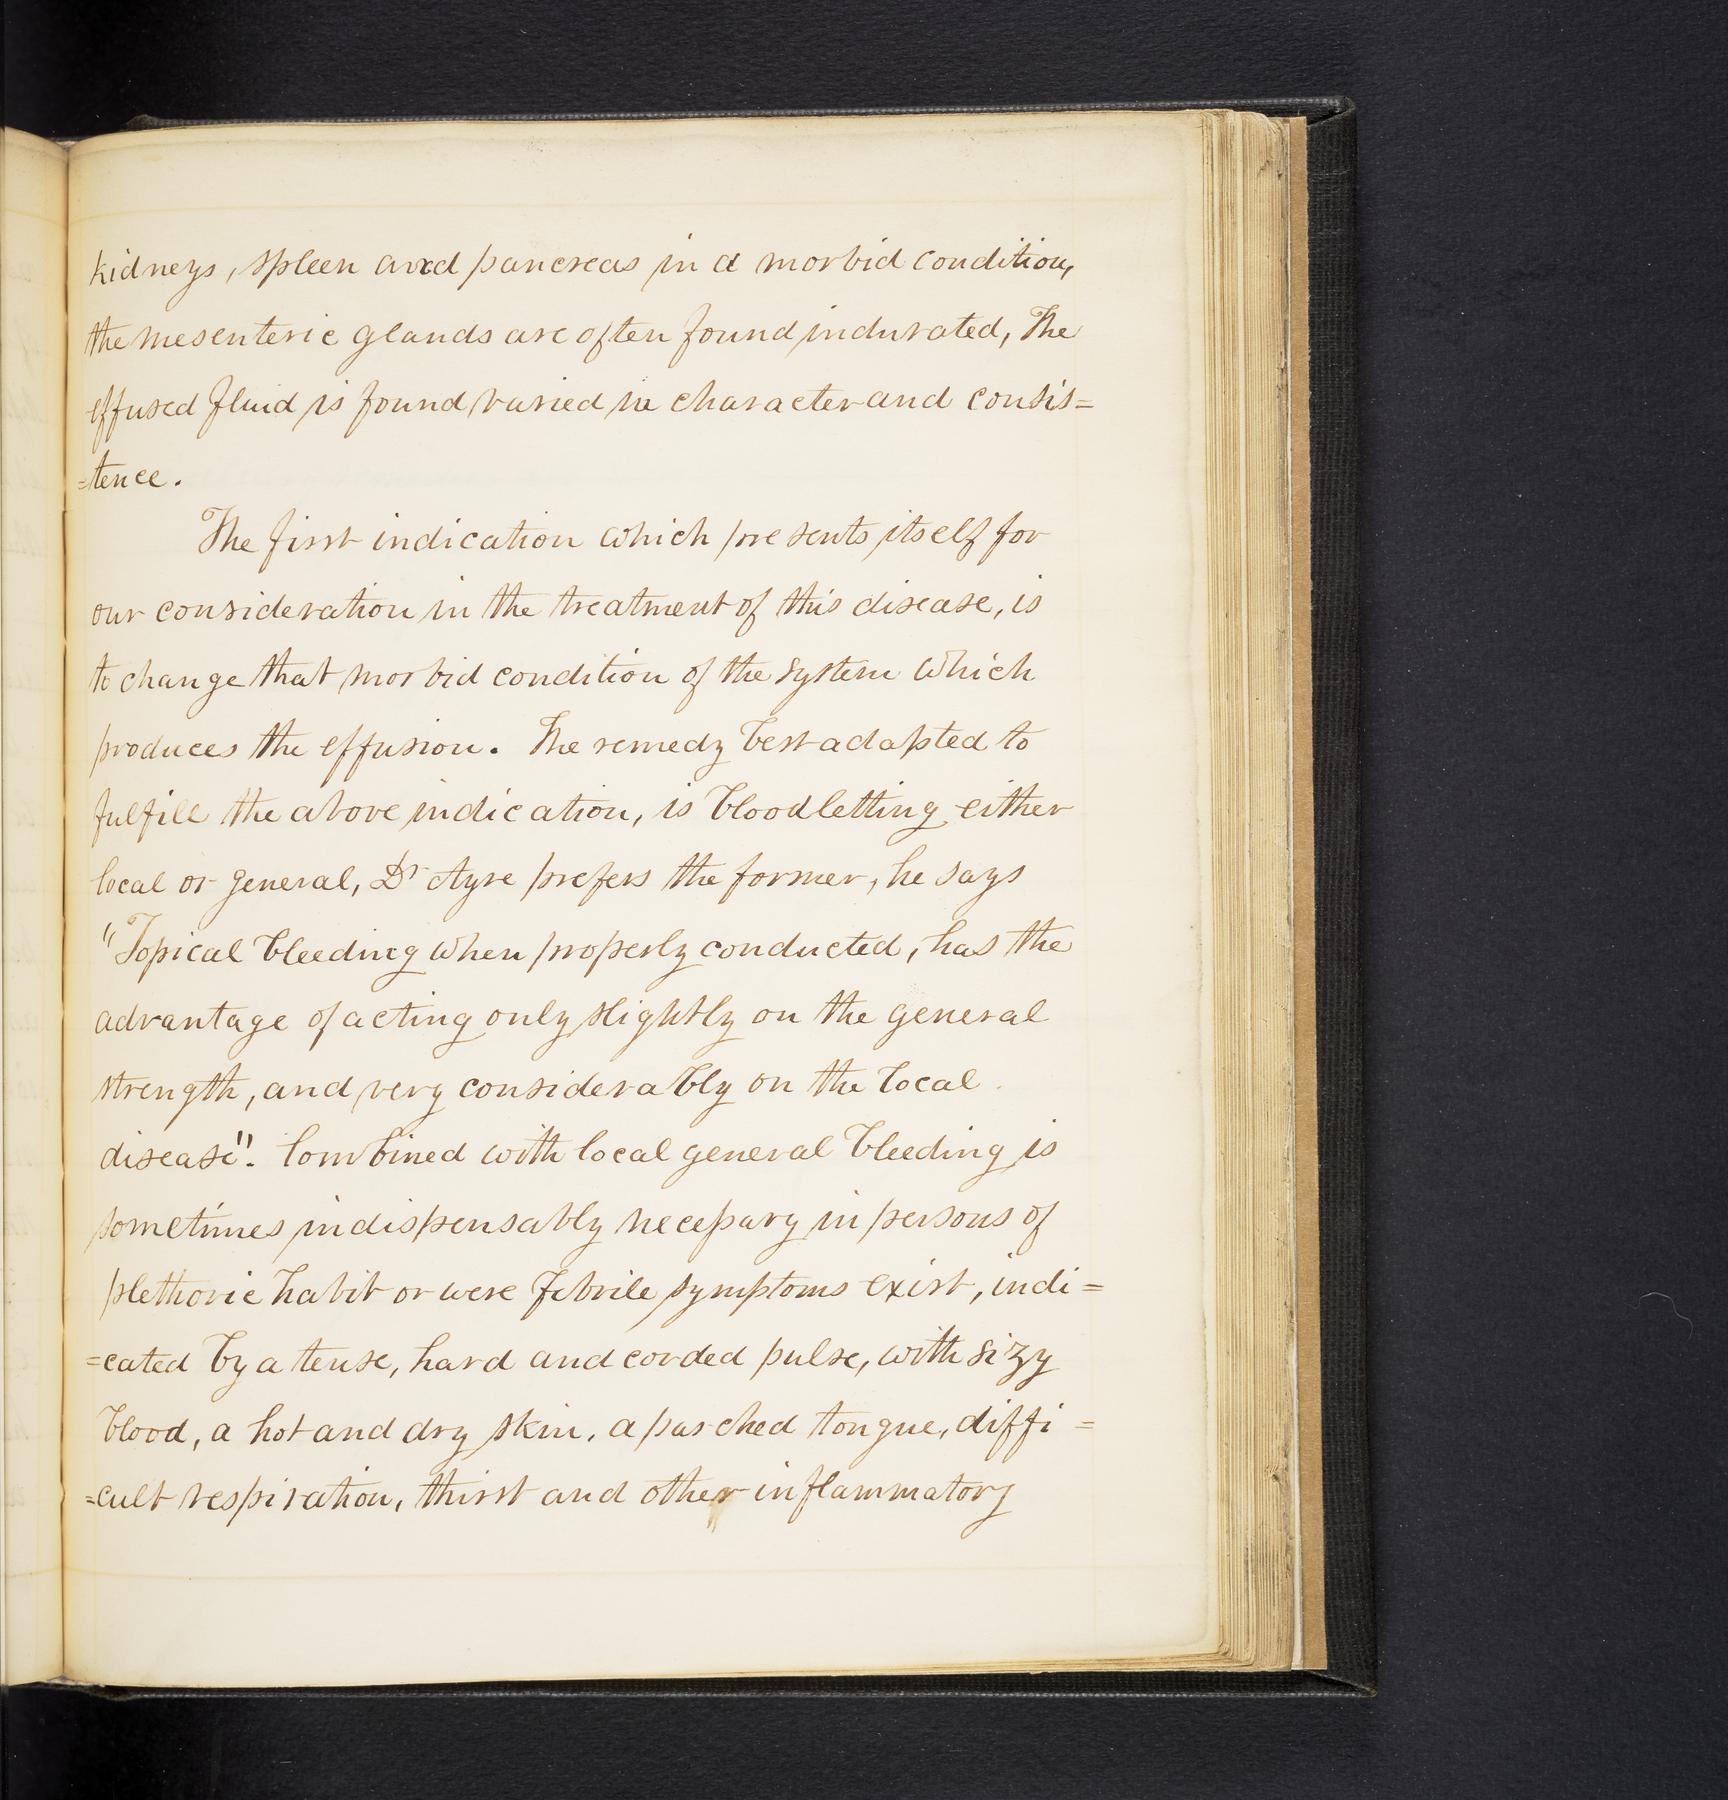 kidneys, spleen and pancreas in a morbid condition,
the mesenteric glands are often found indurated, The
effused fluid is found varied in character and consis=
=tence.
The first indication which presents itself for
our consideration in the treatment of this disease, is
to change that morbid condition of the system which
produces the effusion. The remedy best adapted to
fulfill the above indication, is bloodletting either
local or general, Dr Ayre prefers the former, he says
"Topical bleeding when properly conducted, has the
advantage of acting only slightly on the general
strength, and very considerably on the local
disease". Combined with local general bleeding is
sometimes indispensably necessary in persons of
plethoric habit or were febrile symptoms exist, indi=
=cated by a tense, hard and corded pulse, with sizy
blood, a hot and dry skin, a parched tongue, diffi=
=cult respiration, thirst and other inflammatory